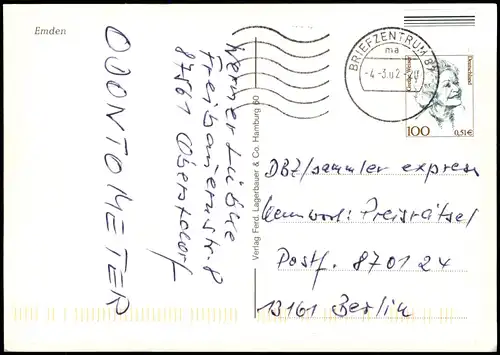 Emden
ODONTOMETER
Werner Lübke
Freibauernstr. 8
87561 Oberstdorf
Verlag Ferd. Lagerbauer & Co. Hamburg 60
BRIEFZENTRUM 87
ma
-4-3.02
Deutschland
100 0,51€
DBZ/sammler express
Kennwort: Preisrätsel
Postf. 870124
13161 Berlin